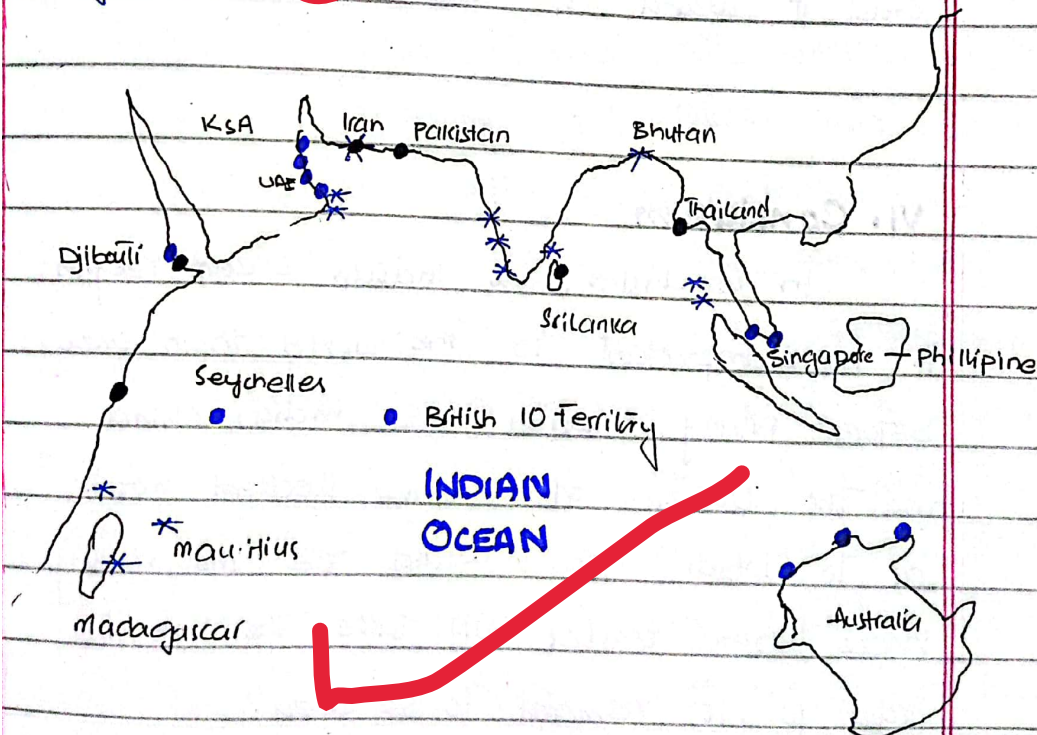 KSA
Iran
Pakistan
Bhutan
UAE
Thailand
Djibouti
Srilanka
Singapore
Phillipine
Seychelles
British IO Territiry
INDIAN
OCEAN
mauritius
Australia
Madagascar